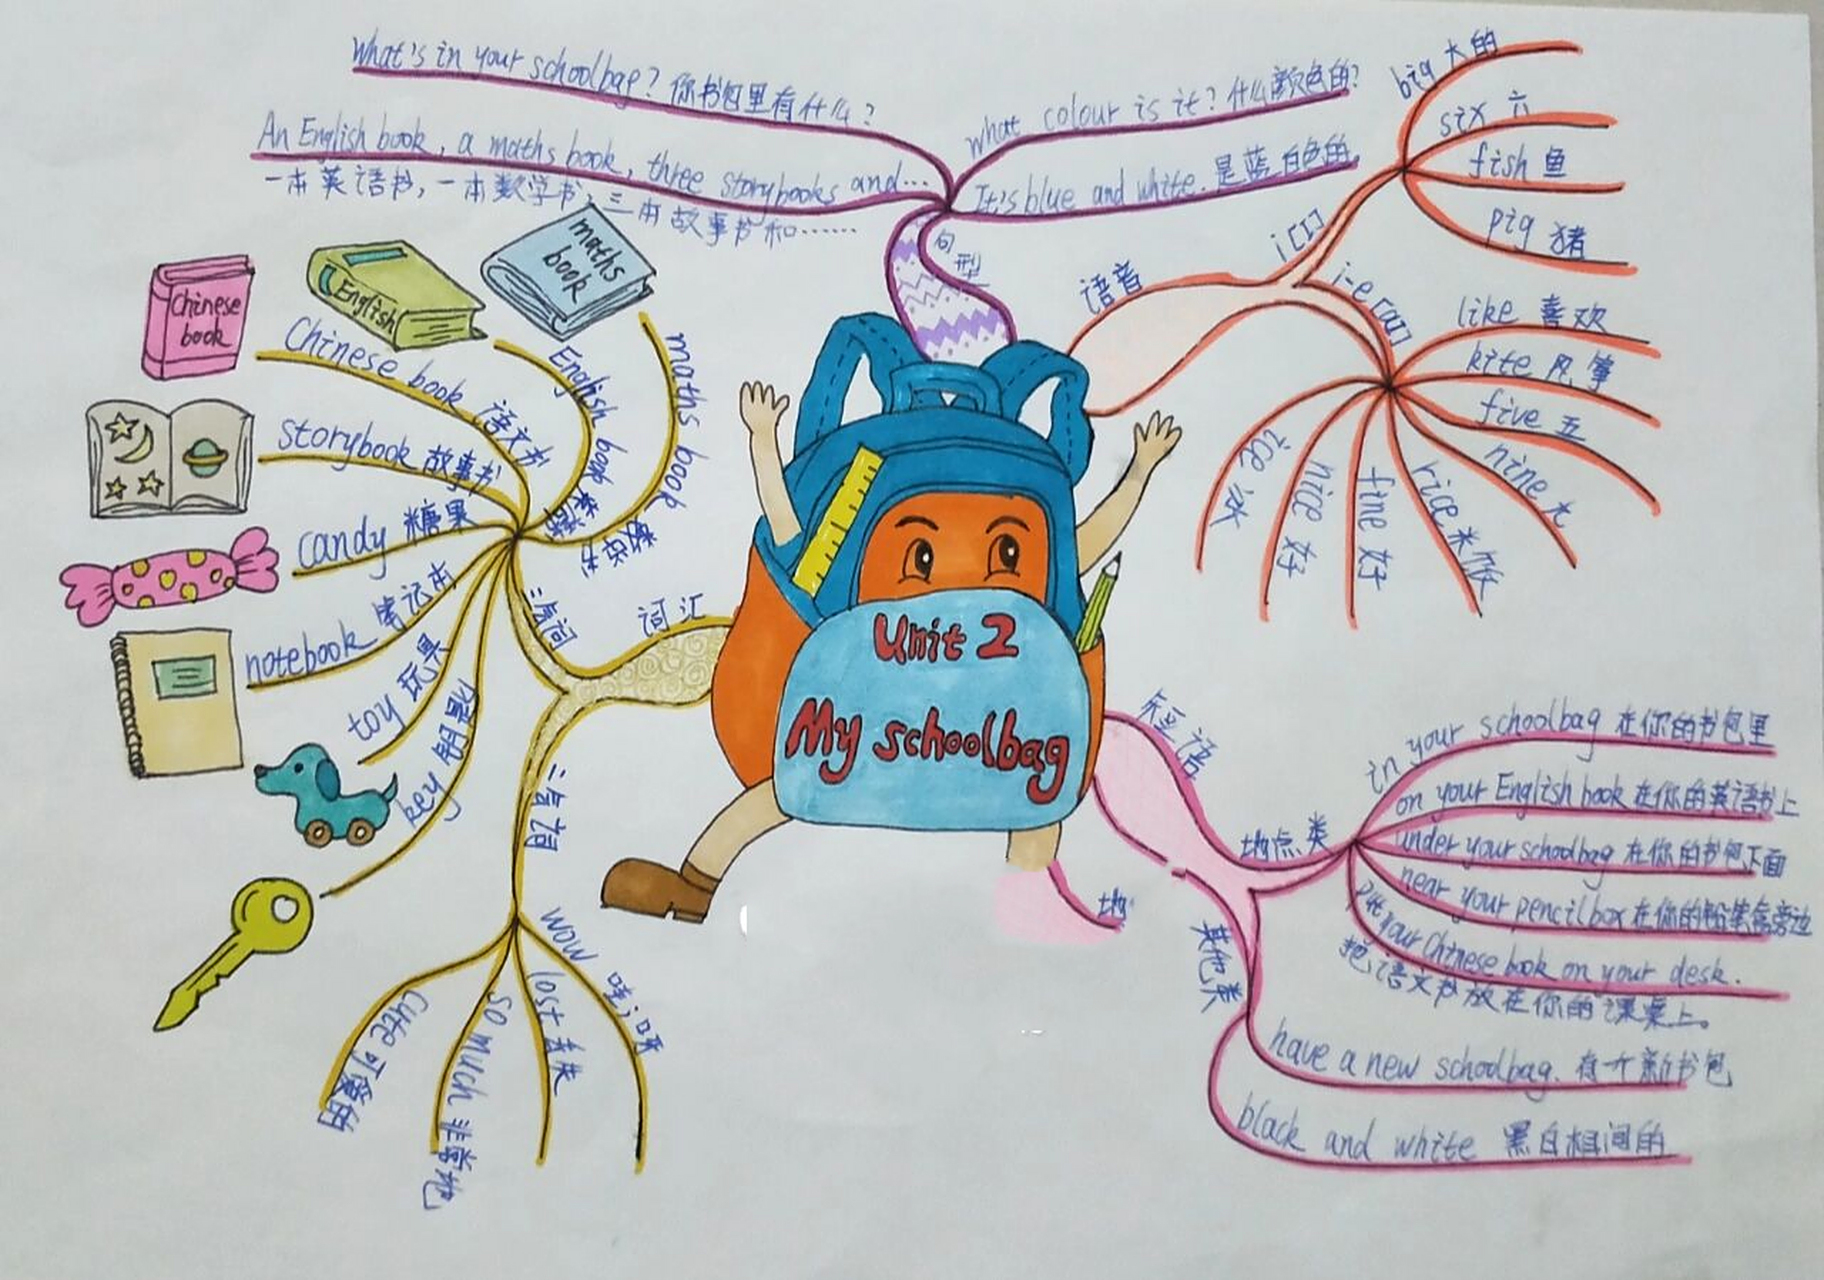 What's in your schoolbag? 你书包里有什么?
An English book, a maths book, three storybooks and...
一本英语书,一本数学书,三本故事书和……
what colour is it? 什么颜色的?
It's blue and white. 是蓝白色的。
句型
语音
i [I]
big 大的
six 六
fish 鱼
pig 猪
i-e [aI]
like 喜欢
kite 风筝
five 五
nine 九
rice 米饭
fine 好
nice 好
ice 冰
Chinese book
English
maths book
maths book 数学书
English book 英语书
Chinese book 语文书
storybook 故事书
candy 糖果
notebook 笔记本
toy 玩具
key 钥匙
词汇
三会词
二会词
wow 哇;呀
lost 丢失
so much 非常地
cute 可爱的
Unit 2
My schoolbag
短语
地点类
in your schoolbag 在你的书包里
on your English book 在你的英语书上
under your schoolbag 在你的书包下面
near your pencilbox 在你的铅笔盒旁边
put your Chinese book on your desk.
把语文书放在你的课桌上。
其他类
have a new schoolbag. 有一个新书包
black and white 黑白相间的
地